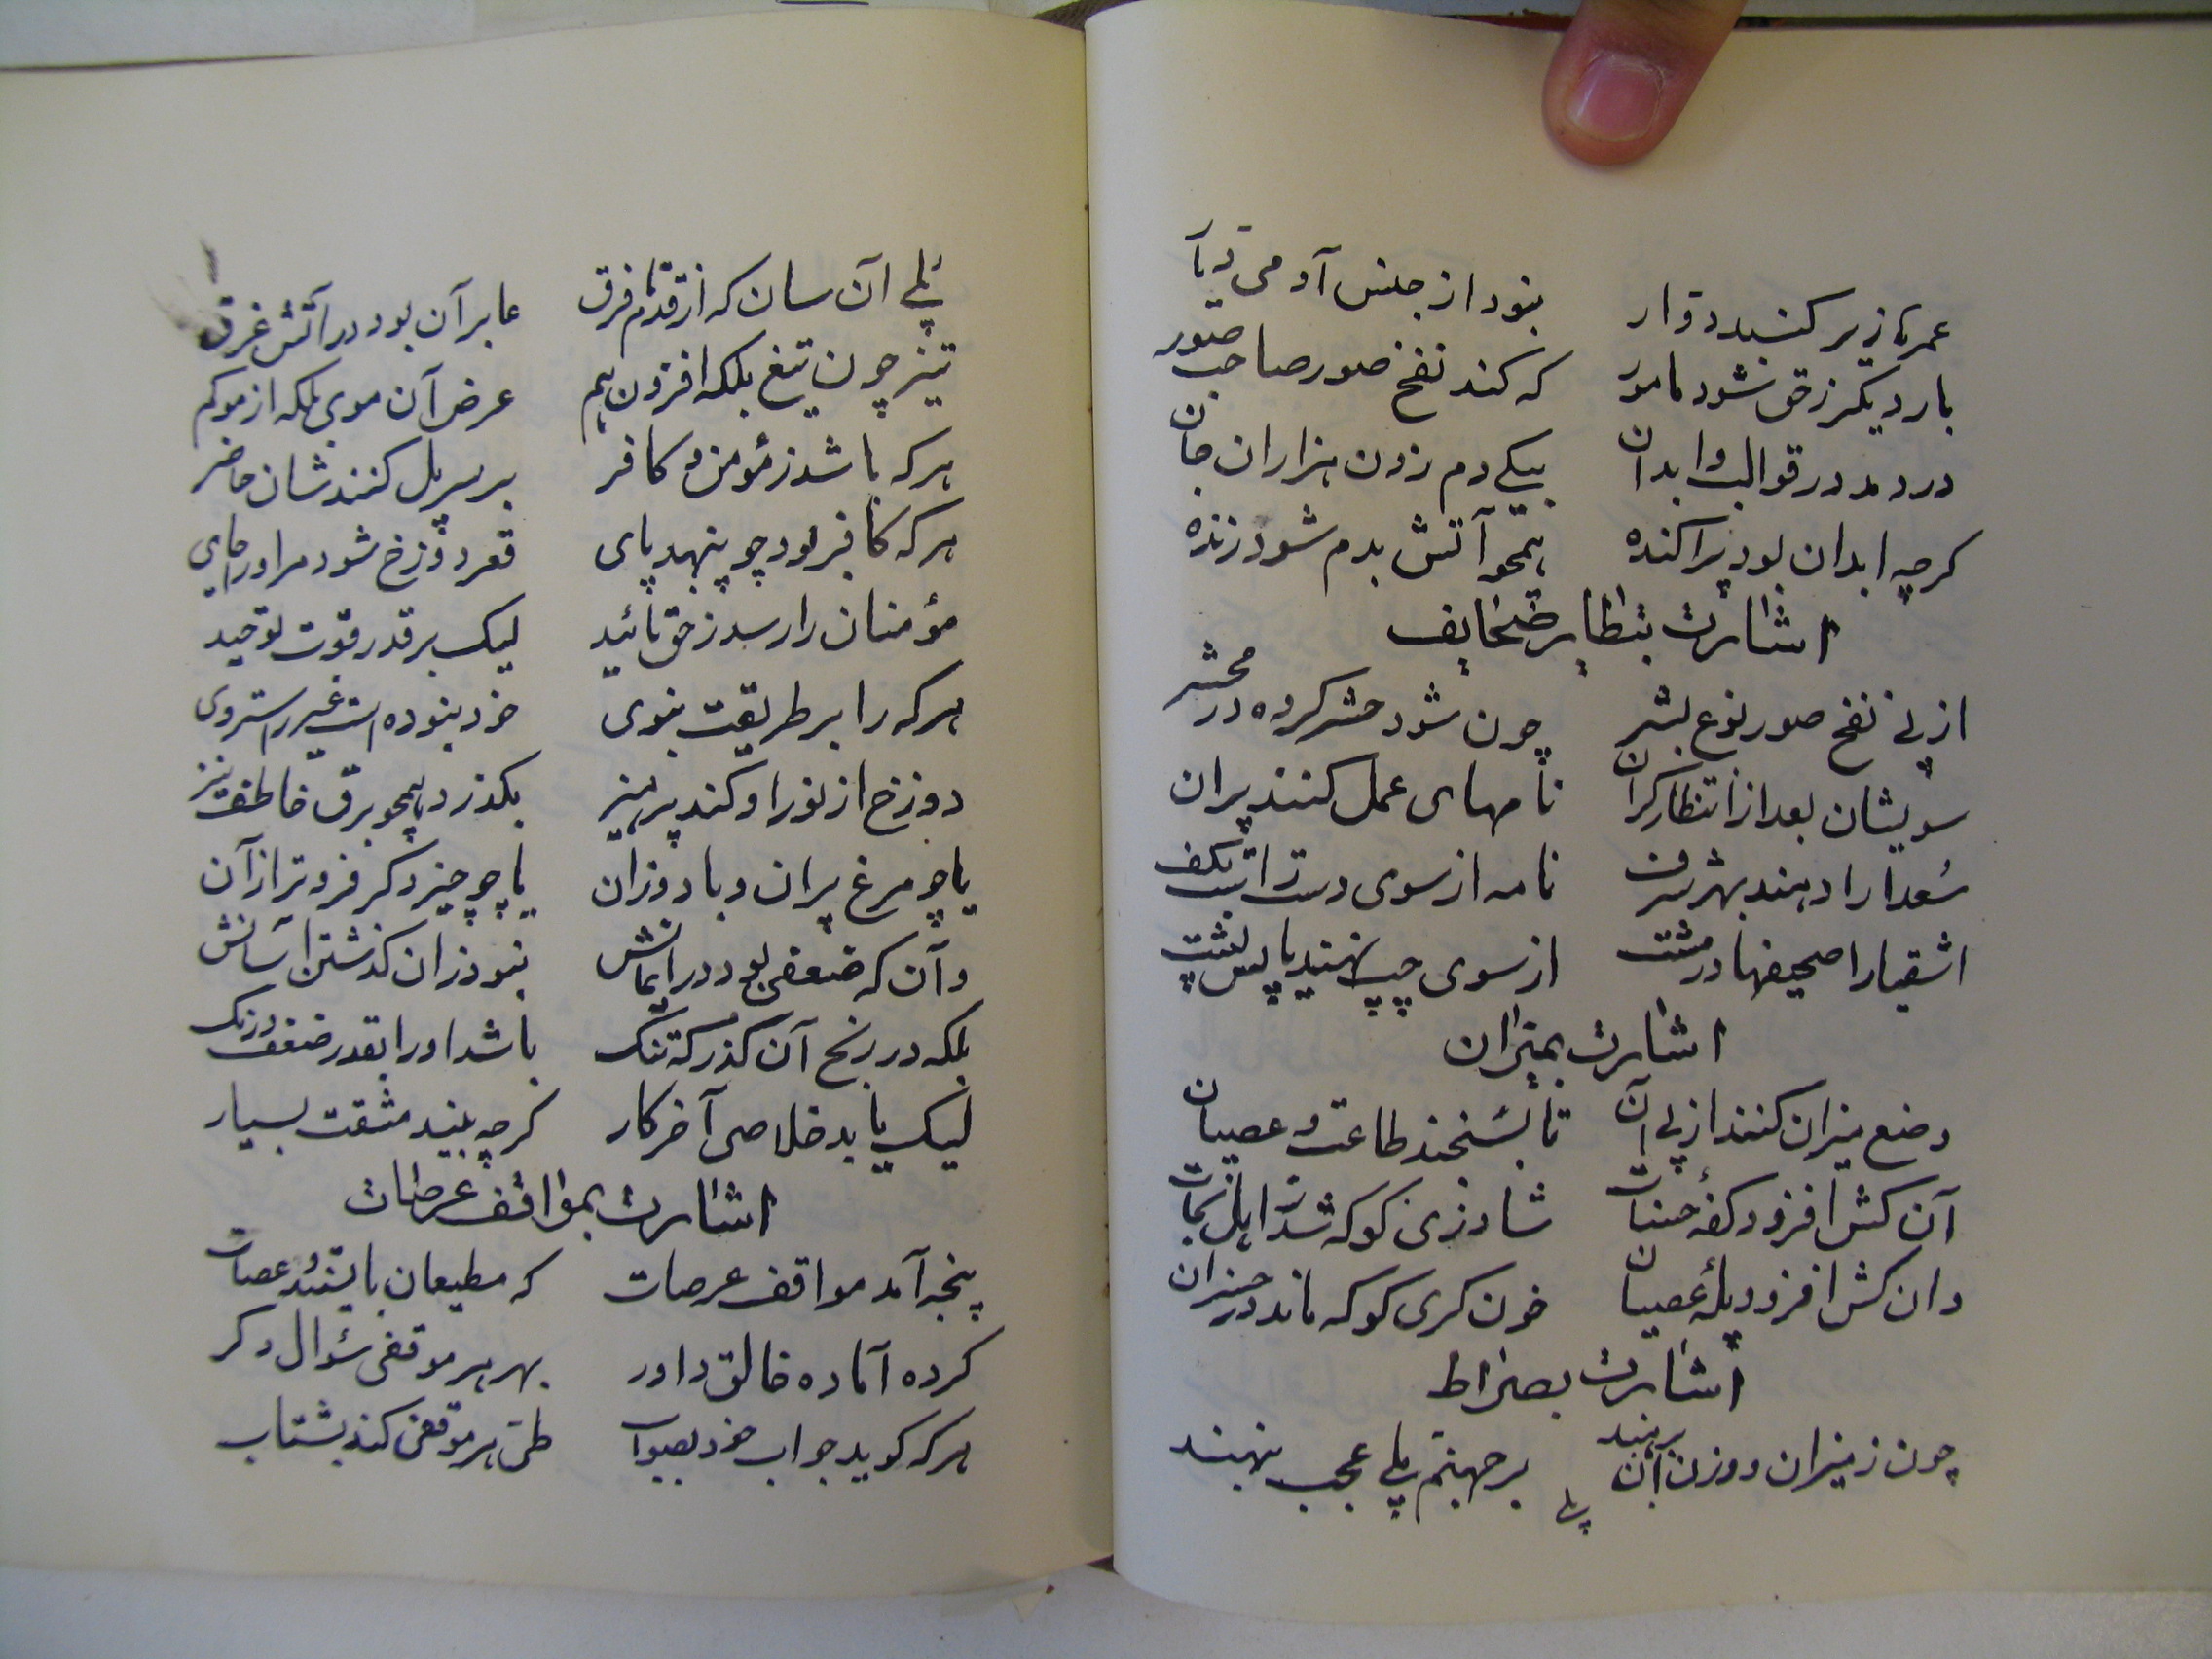 عمرها زیر کنبد دوار نبود از جنس آدمی دیار
بار دیکر ز حق شود مامور که کند نفخ صور صاحب صور
در دمد در قوالب و ابدان بیکی دم زدن هزاران جان
کرچه ابدان بود پراکنده همچو آتش بدم شود زنده
اشارت بتطایر صحایف
از پی نفخ صور نوع بشر چون شود حشر کرده در محشر
سویشان بعد از انتظار کران نامهای عمل کنند پران
سُعدا را دهند بهر شرف نامه از سوی دست راست بکف
اشقیا را صحیفها در مشت از سوی چپ نهند یا پس پشت
اشارت بمیزان
وضع میزان کنند از پی آن تا بسنجند طاعت و عصیان
آن کش افزود کفهٔ حسنات شاد زی کو که شد ز اهل نجات
وان کش افزود پلهٔ عصیان خون کری کو که ماند در خسران
اشارت بصراط
چون ز میزان و وزن آن برهند بر جهنم پلی عجب بنهند
پلی
پُلی آن سان که از قدم تا فرق عابر آن بود در آتش غرق
تیز چون تیغ بلکه افزون هم عرض آن موی بلکه از مو کم
هرکه باشد ز مؤمن و کافر بر سر پل کنندشان حاضر
هرکه کافر بود چو بنهد پای قعر دوزخ شود مر او را جای
مؤمنان را رسد ز حق تائید لیک بر قدر قوت توحید
هرکه را بر طریقت نبوی خود نبوده است غیر راستروی
دوزخ از نور او کند پرهیز بکذرد همچو برق خاطف نیز
یا چو مرغ پران و باد وزان یا چو چیز دکر فروتر از آن
وآن که ضعفی بود در ایمانش نبود زان کذشتن آسانش
بلکه در رنج آن کذرکه تنک باشد او را بقدر ضعف درنک
لیک یابد خلاصی آخر کار کرچه بیند مشقت بسیار
اشارت بمواقف عرصات
پنجه آمد مواقف عرصات که مطیعان بایستند و عصات
کرده آماده خالق داور بهر هر موقفی سؤال دکر
هرکه کوید جواب خود بصواب طی هر موقفی کند بشتاب